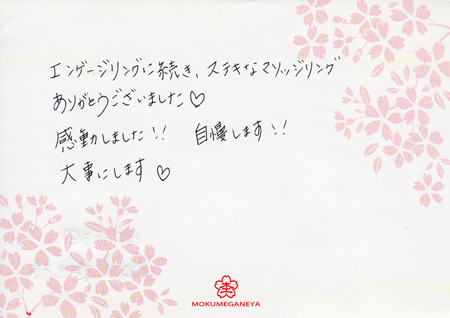 エンゲージリングに続き、ステキなマリッジリング
ありがとうございました♡
感動しました!! 自慢します!!
大事にします♡
MOKUMEGANEYA